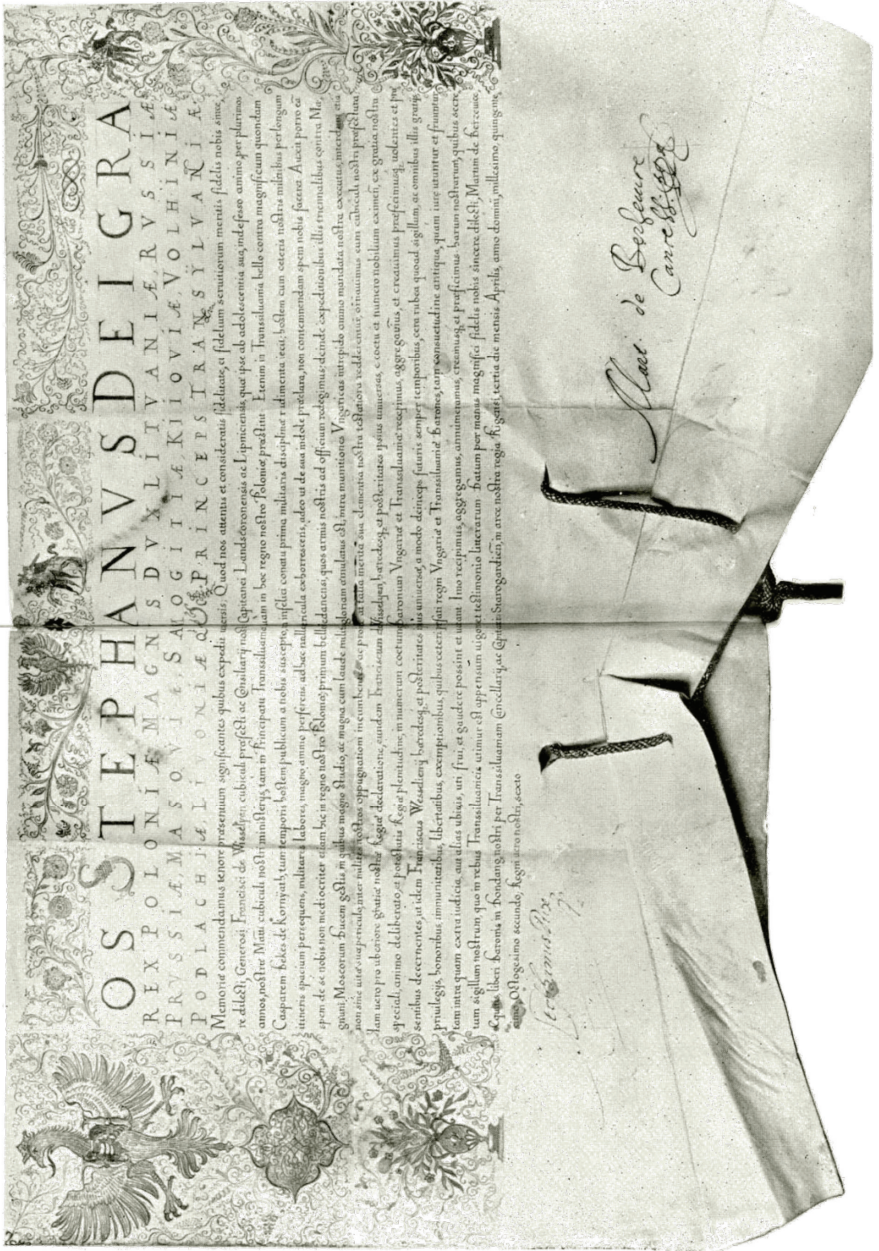 OS STEPHANVS DEI GRA
REX POLONIÆ MAGNS DVX LITVANIÆ RVSSIÆ
PRVSSIÆ MASOVIÆ SAMOGITIÆ KIIOVIÆ VOLHINIÆ
PODLACHIÆ LI ONIÆ PRINCEPS TRANSYLVANIÆ
Memoriæ commendamus tenore præsentium significantes quibus expedit Quod nos attentis et consideratis fidelitate, ac fidelium seruitiorum meritis fidelis nobis since
re dilecti, Generosi Francisci de Wesselyen cubiculi præfecti ac Consiliarij nostri Capitanei Landscoronensis ac Lipnicensis, quæ ipse ab adolescentia sua, indefesso animo, per plurimos
annos, nostræ Maiestati cubiculi nostri ministerijs, tam in Principatu Transsiluaniæ quam in hoc regno nostro Poloniæ præstitit Etenim in Transsiluania bello contra magnificum quondam
Casparem Bekes de Kornyath, tum temporis hostem publicum a nobis suscepto, infelici conatu prima militaris disciplinæ rudimenta iecit, hostem cum ceteris nostris militibus per longum
itineris spacium persequens, militaris labores, magno animo perferens, ad hæc nulla pericula exhorrescens, adeo ut de sua indole præclara, non contemnendam spem nobis faceret Auxit porro
spem de se nobis non mediocriter etiam hic in regno nostro Poloniæ, primum bello Gedanensi, quos armis nostris ad officium redegimus, deinde expeditionibus illis triennalibus contra Ma
gnum Moscorum Ducem gestis in quibus magno studio, ac magna cum laude militarem gloriam æmulatus est, intra munitiones Vngaricas intrepido animo mandata nostra executus, interdum etiam
non sine uitæ suæ periculo, inter milites nostros oppugnationi incumbens ac pro talia merita sua clementia nostra testatiora redderentur, ornauimus eum cubiculi nostri præfectura
Iam uero pro uberiore gratiæ nostræ Regiæ declaratione, eundem Franciscum de Wesselyen hæredesque, et posteritates ipsius uniuersas, e coetu et numero nobilium eximentes, ex gratia nostra
speciali, animo deliberato, et potestatis Regiæ plenitudine, in numerum coetumque baronum Vngariæ et Transsiluaniæ recepimus, aggregauimus, et creauimus præfecimusque, uolentes et præ
sentibus decernentes, ut idem Franciscus Wesselenij hæredesque, et posteritates eius uniuersæ a modo deinceps futuris semper temporibus, cera rubea quoad sigillum, ac omnibus illis gratijs
priuilegijs, honoribus, immunitatibus, libertatibus, exemptionibus, quibus ceteri præfati regni Vngariæ et Transsiluaniæ Barones, tam consuetudine antiqua, quam iure utuntur et fruuntur
tam intra quam extra iudicia, aut alias ubiuis, uti frui, et gaudere possint et ualeant Imo recipimus, aggregamus, annumeramus, creamusque et præficimus harum nostrarum, quibus secre
tum sigillum nostrum, quo in rebus Transsiluanicis utimur est appensum uigore et testimonio litterarum Datum per manus magnifici fidelis nobis sincere dilecti, Martini de Berzeuice
Equitis liberi baronis in nostri per Transsiluaniam Cancellarij, ac Capitanei Starogardien, in arce nostra regia tertia die mensis Aprilis, anno domini, millesimo, quingente
simo, Octogesimo secundo, Regni uero nostri, sexto
Stephanus Rex
Mart de Berzeuice
Cancell